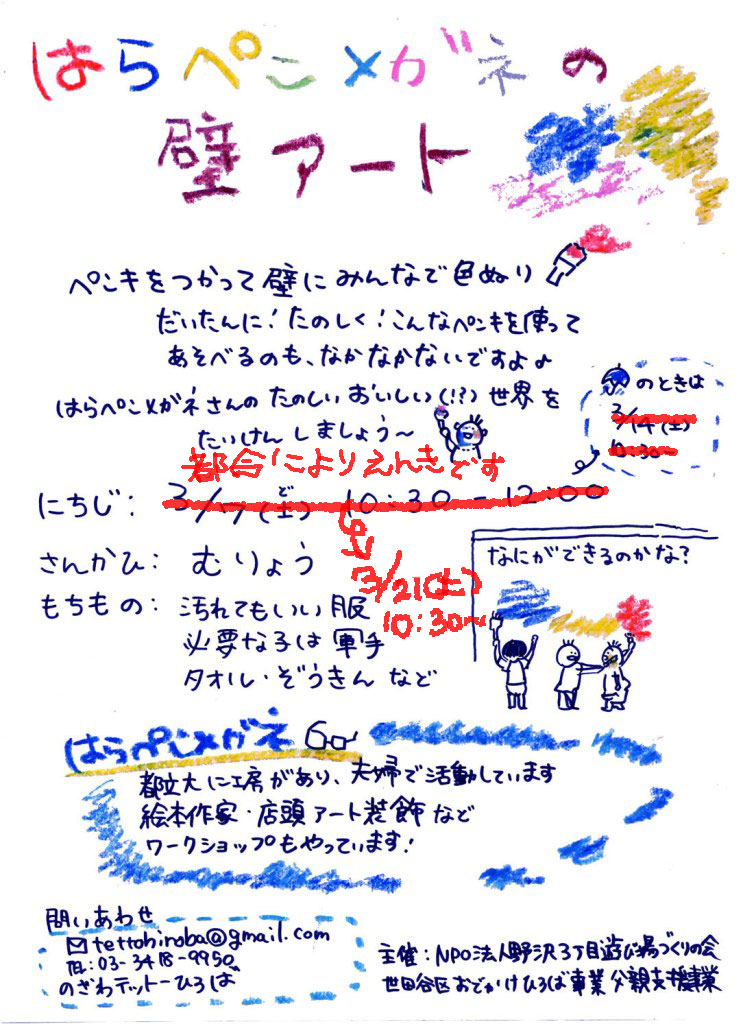 はらぺこメガネの
壁アート
ペンキをつかって壁にみんなで色ぬり
だいたんに！たのしく！こんなペンキを使って
あそべるのも、なかなかないですよ♪
はらぺこメガネさんのたのしいおいしい(!?)世界を
たいけんしましょう〜
のときは
3/14(土)
10:30〜
都合によりえんきです
にちじ： 3/7(土) 10:30-12:00
ど
3/21(土)
10:30〜
さんかひ： むりょう
もちもの： 汚れてもいい服
必要な子は軍手
タオル・ぞうきんなど
なにができるのかな？
はらぺこメガネ
都立大に工房があり、夫婦で活動しています
絵本作家・店頭アート装飾など
ワークショップもやっています！
問いあわせ
tettohiroba@gmail.com
TEL:03-3418-9950
のざわテットーひろば
主催：NPO法人野沢3丁目遊び場づくりの会
世田谷区おでかけひろば事業 父親支援事業